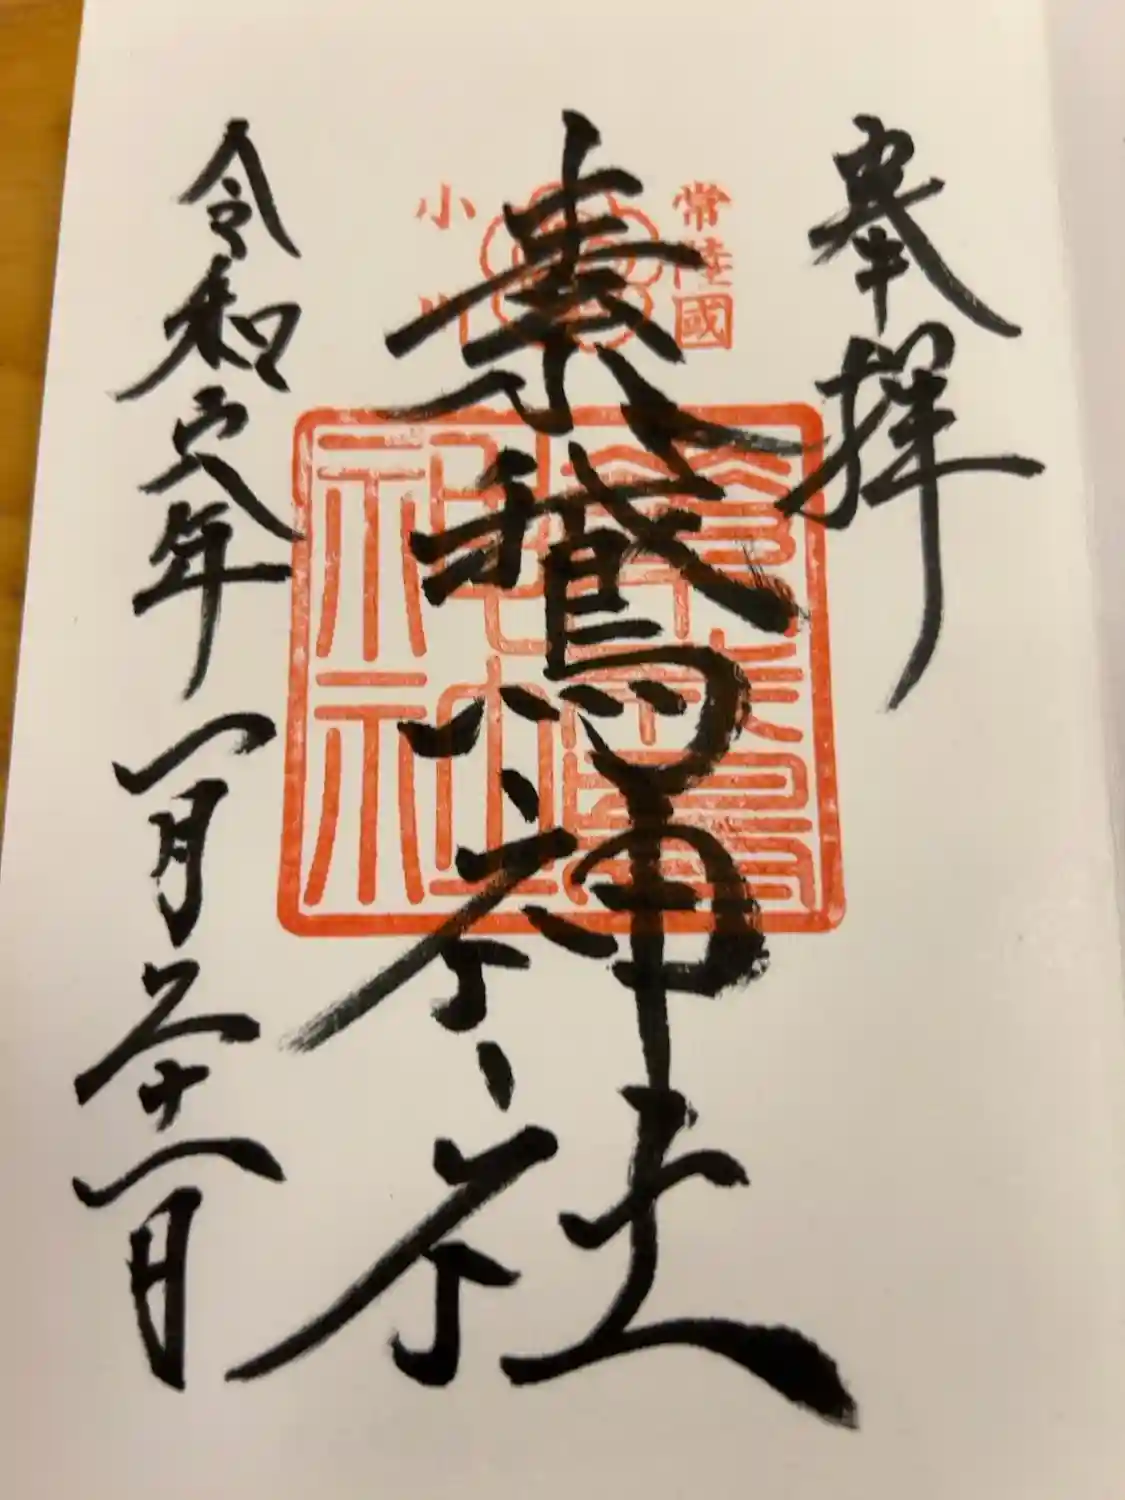 奉拝
常陸國
小川
素鵞神社
素鵞神社
令和六年一月二十一日